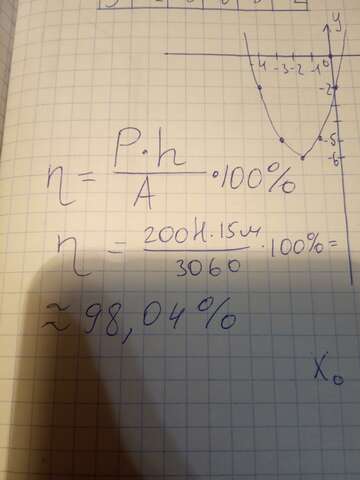 y
-4 -3 -2 -1 0
-2
-5
-6
η = P·h / A · 100%
η = 200Н·15м / 3060 · 100% =
≈ 98,04%
X₀